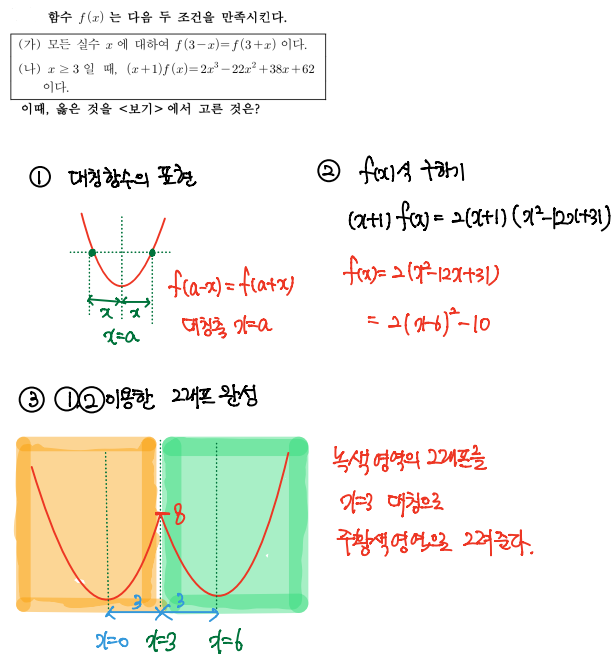 함수 f(x) 는 다음 두 조건을 만족시킨다.
(가) 모든 실수 x 에 대하여 f(3-x)=f(3+x) 이다.
(나) x ≥ 3 일 때, (x+1)f(x)=2x³-22x²+38x+62
이다.
이때, 옳은 것을 <보기> 에서 고른 것은?
① 대칭함수의 표현
f(a-x) = f(a+x)
대칭축 x=a
x x
x=a
② f(x)식 구하기
(x+1) f(x) = 2(x+1) (x²-12x+31)
f(x)= 2(x²-12x+31)
= 2(x-6)²-10
③ ①,②이용한 그래프 완성
8
3 3
x=0 x=3 x=6
녹색영역의 그래프를
x=3 대칭으로
주황색영역으로 그려준다.